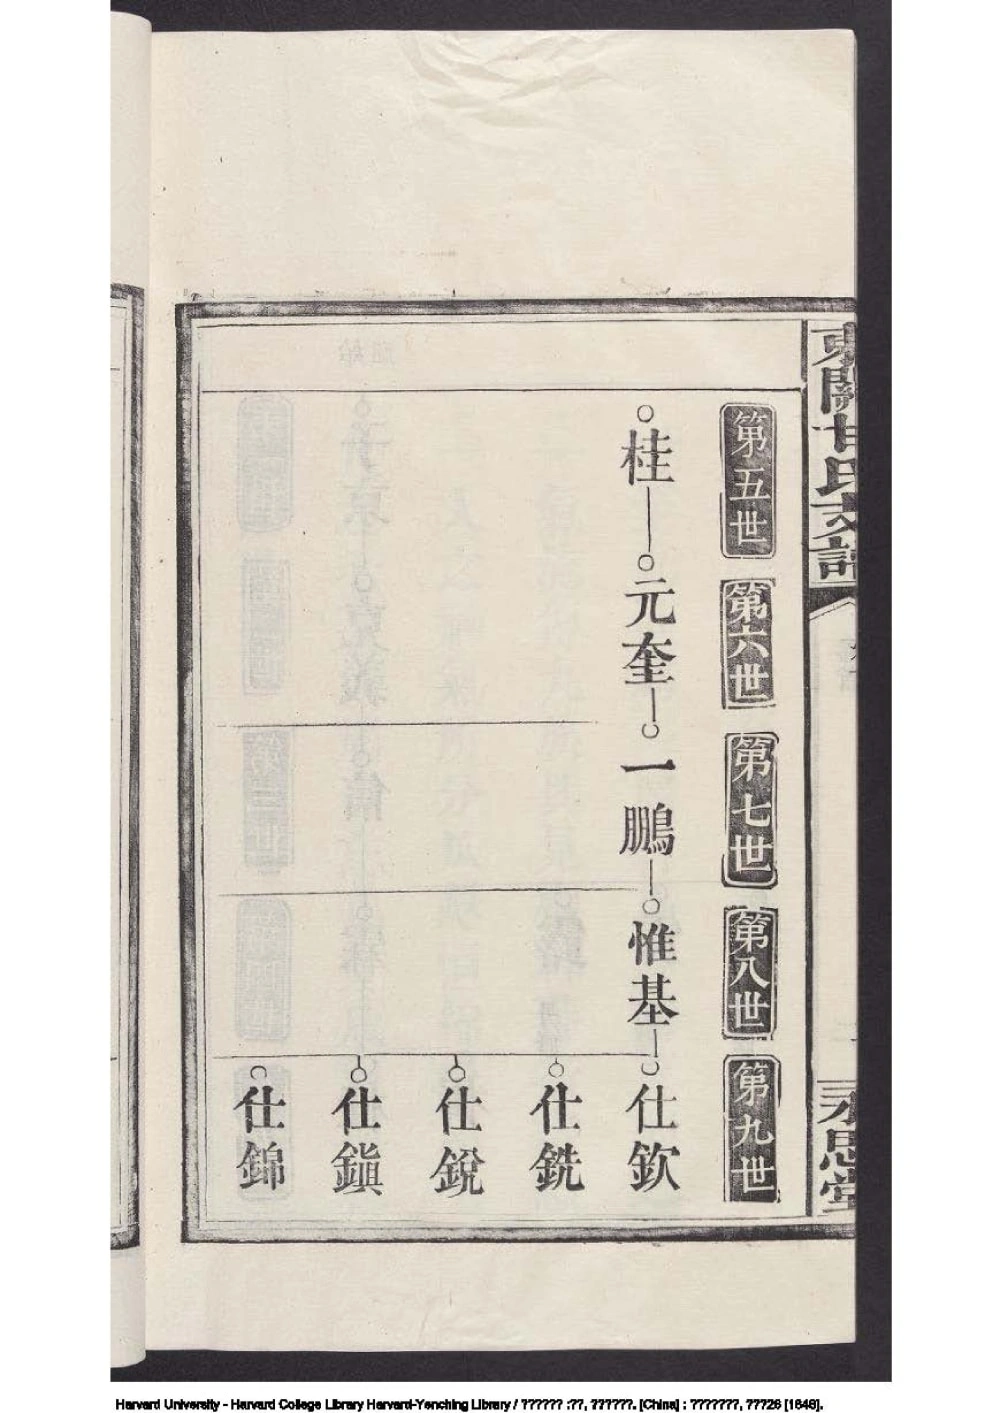 東關甘氏支譜
永思堂
第五世
第六世
第七世
第八世
第九世
桂
元奎
一鵬
惟基
仕欽
仕銑
仕銳
仕鎭
仕錦
Harvard University - Harvard College Library Harvard-Yenching Library / ?????? :??, ??????. [China] : ???????, ??726 [1848].